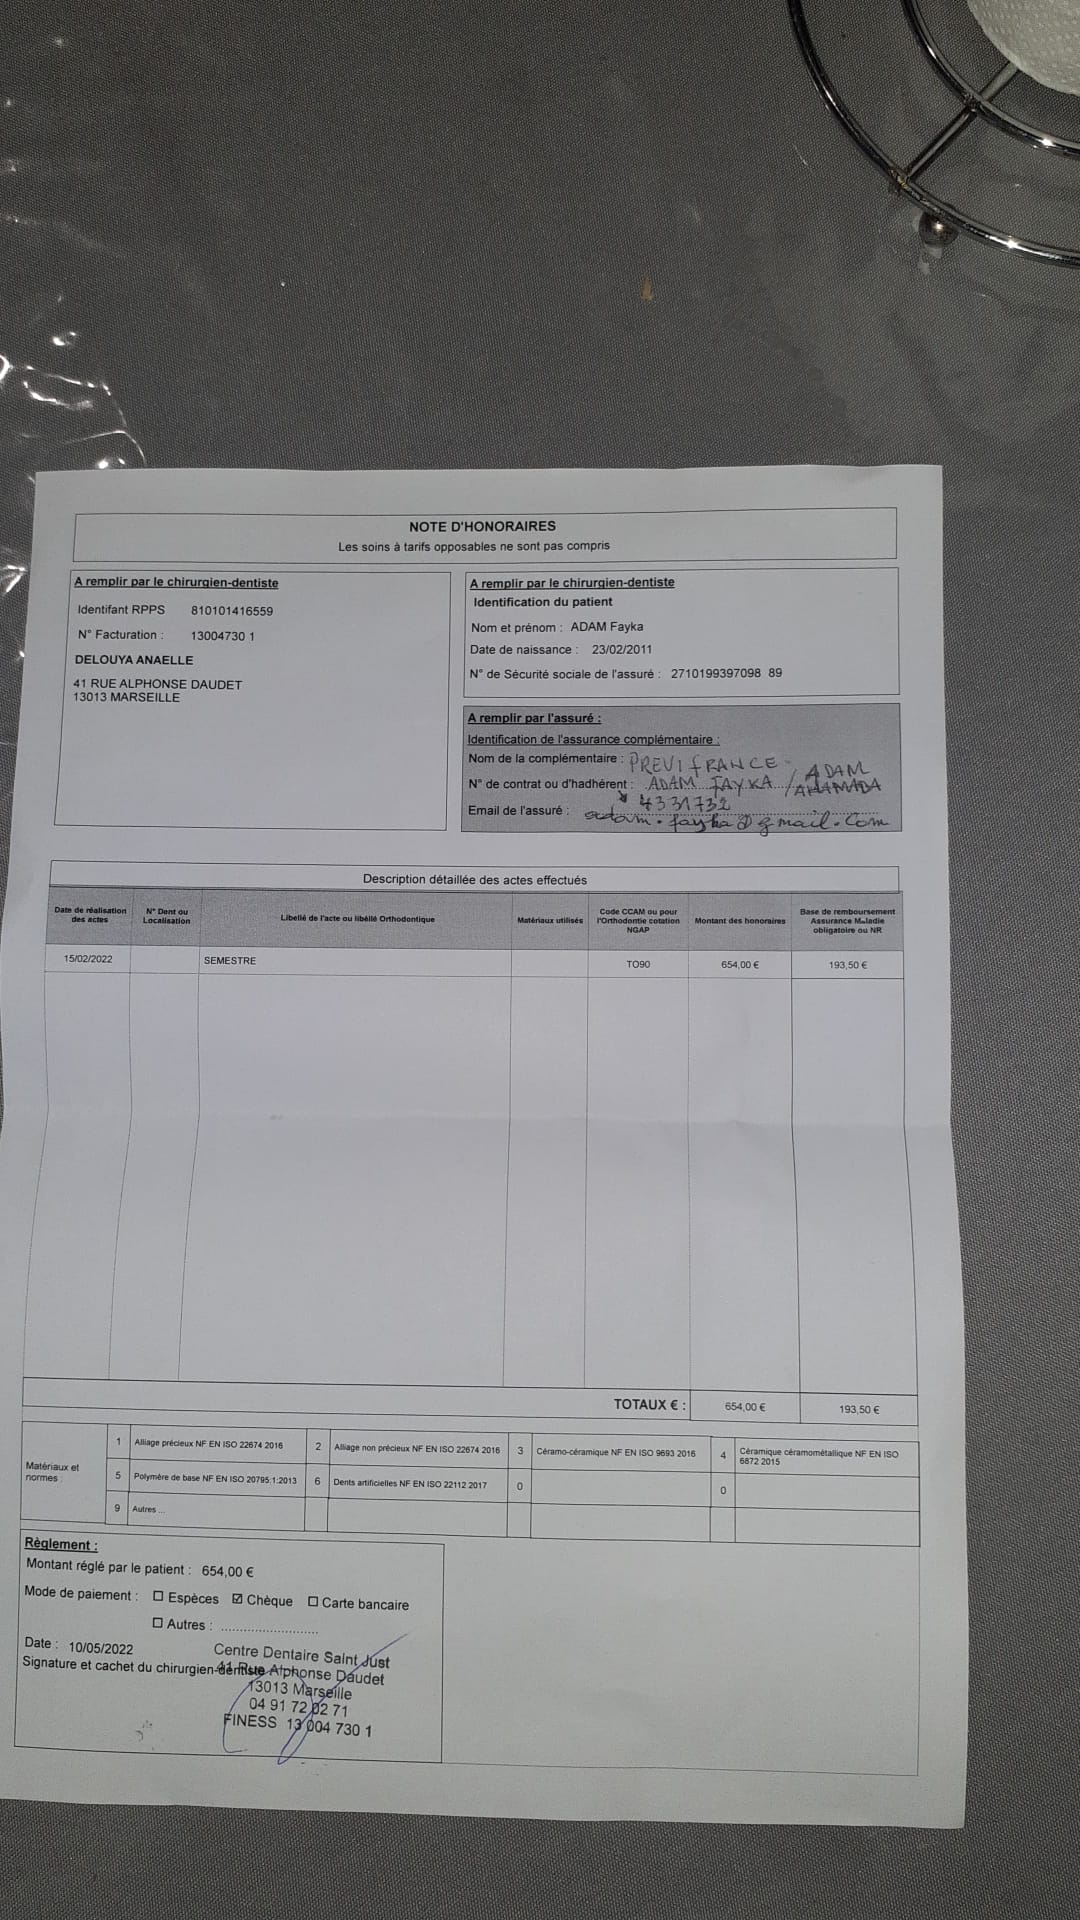 NOTE D'HONORAIRES
Les soins à tarifs opposables ne sont pas compris
A remplir par le chirurgien-dentiste
Identifant RPPS 810101416559
N° Facturation : 13004730 1
DELOUYA ANAELLE
41 RUE ALPHONSE DAUDET
13013 MARSEILLE
A remplir par le chirurgien-dentiste
Identification du patient
Nom et prénom : ADAM Fayka
Date de naissance : 23/02/2011
N° de Sécurité sociale de l'assuré : 2710199397098 89
A remplir par l'assuré :
Identification de l'assurance complémentaire :
Nom de la complémentaire : PREVIFRANCE
N° de contrat ou d'hadhérent : ADAM FAYKA / ADAM AHAMADA
4331732
Email de l'assuré : adam.fayka@gmail.com
Description détaillée des actes effectués
Date de réalisation des actes N° Dent ou Localisation Libellé de l'acte ou libéllé Orthodontique Matériaux utilisés Code CCAM ou pour l'Orthodontie cotation NGAP Montant des honoraires Base de remboursement Assurance Maladie obligatoire ou NR
15/02/2022 SEMESTRE TO90 654,00 € 193,50 €
TOTAUX € : 654,00 € 193,50 €
Matériaux et normes :
1 Alliage précieux NF EN ISO 22674 2016 2 Alliage non précieux NF EN ISO 22674 2016 3 Céramo-céramique NF EN ISO 9693 2016 4 Céramique céramométallique NF EN ISO 6872 2015
5 Polymère de base NF EN ISO 20795:1:2013 6 Dents artificielles NF EN ISO 22112 2017 0 0
9 Autres ...
Règlement :
Montant réglé par le patient : 654,00 €
Mode de paiement : ☐ Espèces ☑ Chèque ☐ Carte bancaire
☐ Autres : ..........................
Date : 10/05/2022
Signature et cachet du chirurgien-dentiste
Centre Dentaire Saint Just
41 Rue Alphonse Daudet
13013 Marseille
04 91 72 02 71
FINESS 13 004 730 1